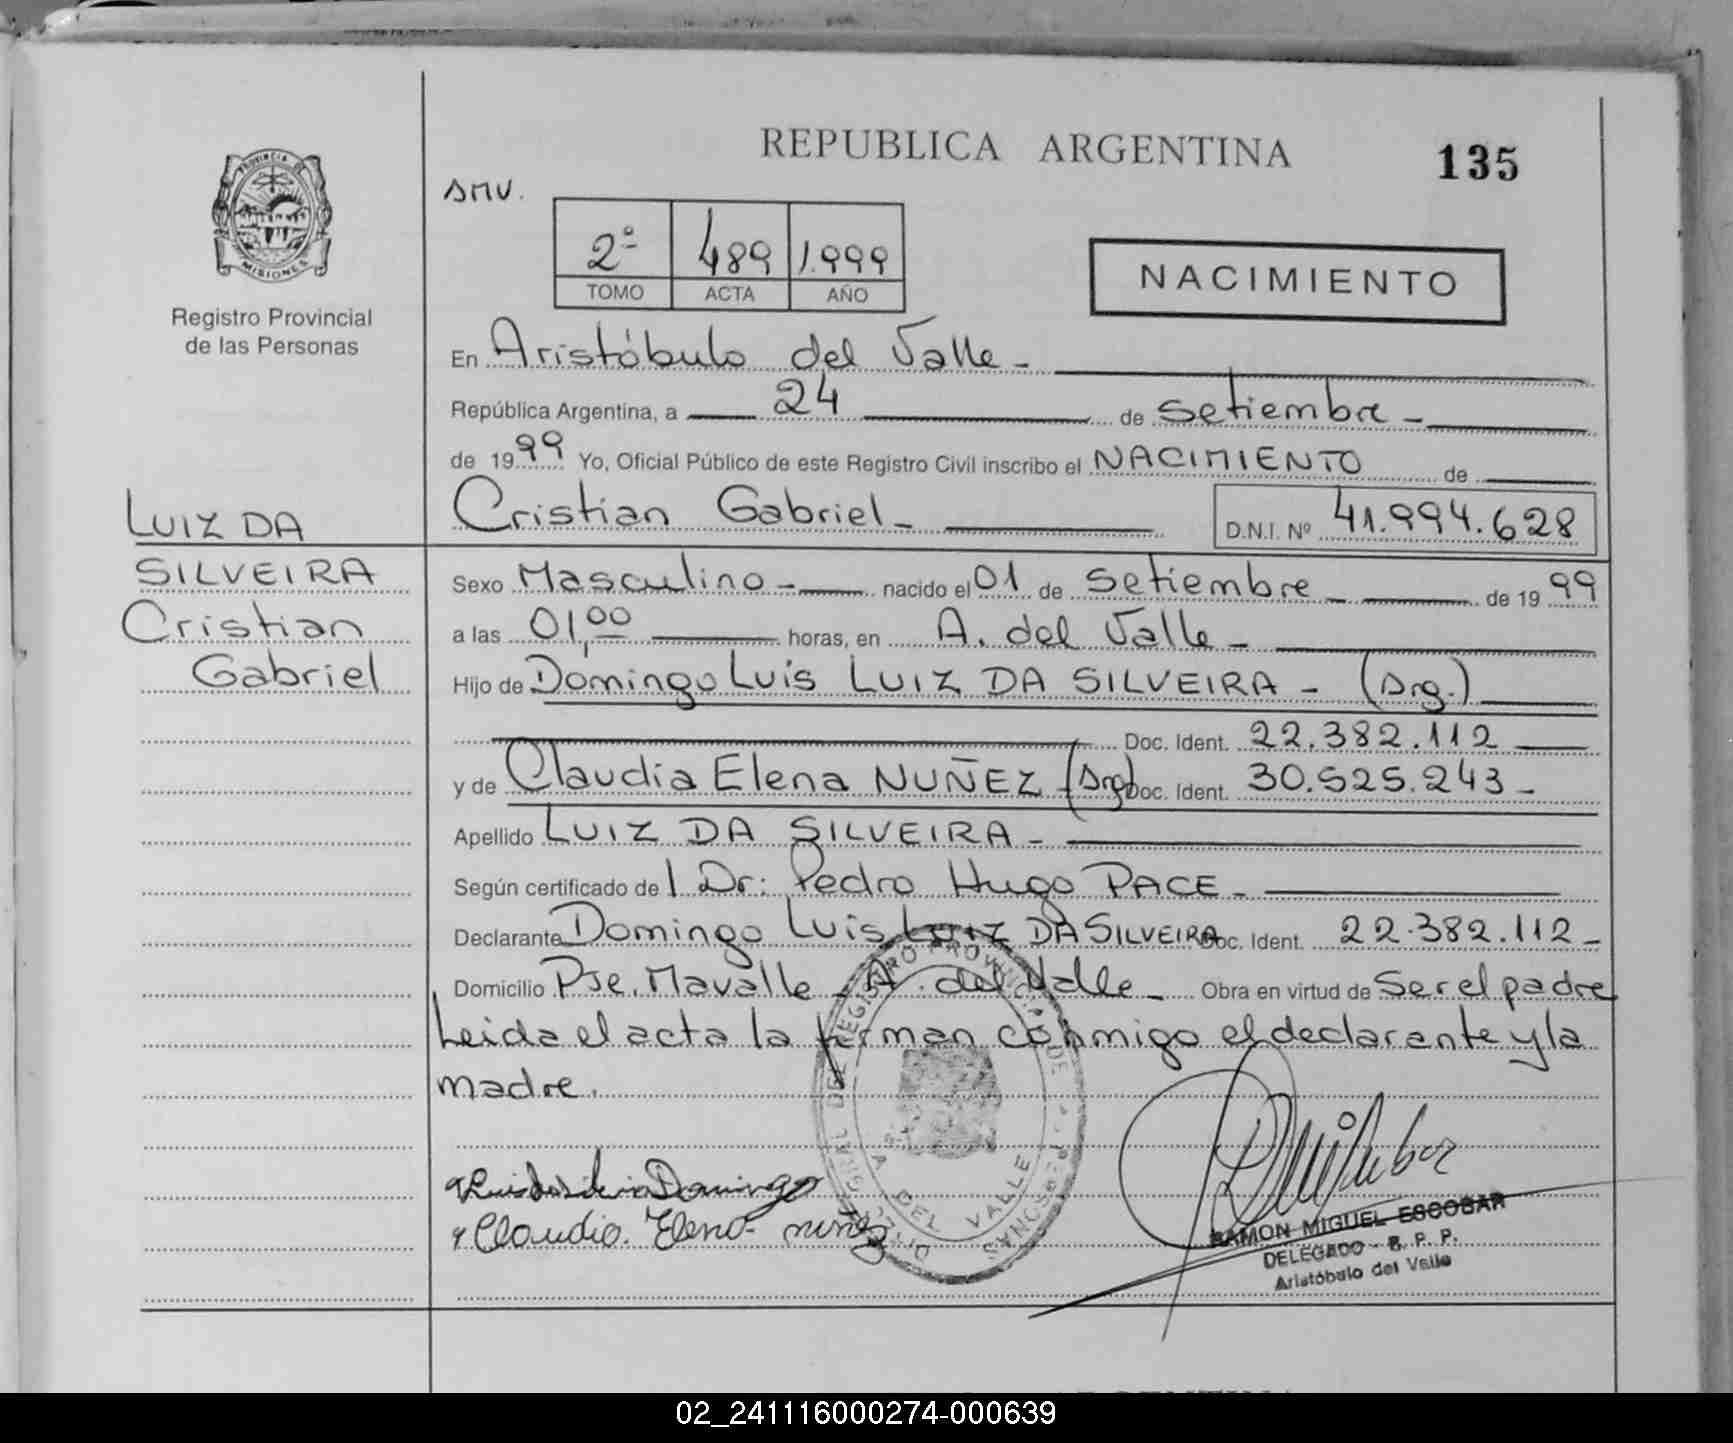 REPUBLICA ARGENTINA
135
PROVINCIA DE
MISIONES
Registro Provincial
de las Personas
SMV.
2º 489 1.999
TOMO ACTA AÑO
NACIMIENTO
En Aristóbulo del Valle -
República Argentina, a 24 de setiembre -
de 1999 Yo, Oficial Público de este Registro Civil inscribo el NACIMIENTO de
Cristian Gabriel - D.N.I. Nº 41.994.628
LUIZ DA
SILVEIRA
Cristian
Gabriel
Sexo Masculino - nacido el 01 de setiembre - de 1999
a las 01,00 horas, en A. del Valle -
Hijo de Domingo Luis LUIZ DA SILVEIRA - (Arg.)
Doc. Ident. 22.382.112
y de Claudia Elena NUÑEZ (Arg) Doc. Ident. 30.525.243 -
Apellido LUIZ DA SILVEIRA -
Según certificado de l Dr: Pedro Hugo PACE -
Declarante Domingo Luis LUIZ DA SILVEIRA Doc. Ident. 22.382.112 -
Domicilio Pje. Mavalle - A. del Valle - Obra en virtud de ser el padre
Leida el acta la firman conmigo el declarante y la
madre.
Domingo
Claudia Elena nuñez
A. DEL VALLE
RAMON MIGUEL ESCOBAR
DELEGADO - R. P. P.
Aristóbulo del Valle
02_241116000274-000639